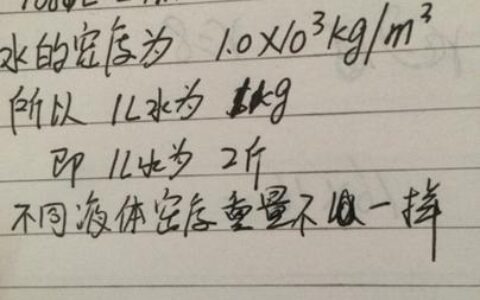 水的密度为 1.0×10³kg/m³
所以 1L水为 1kg
即 1L水为 2斤
不同液体密度重量不一样